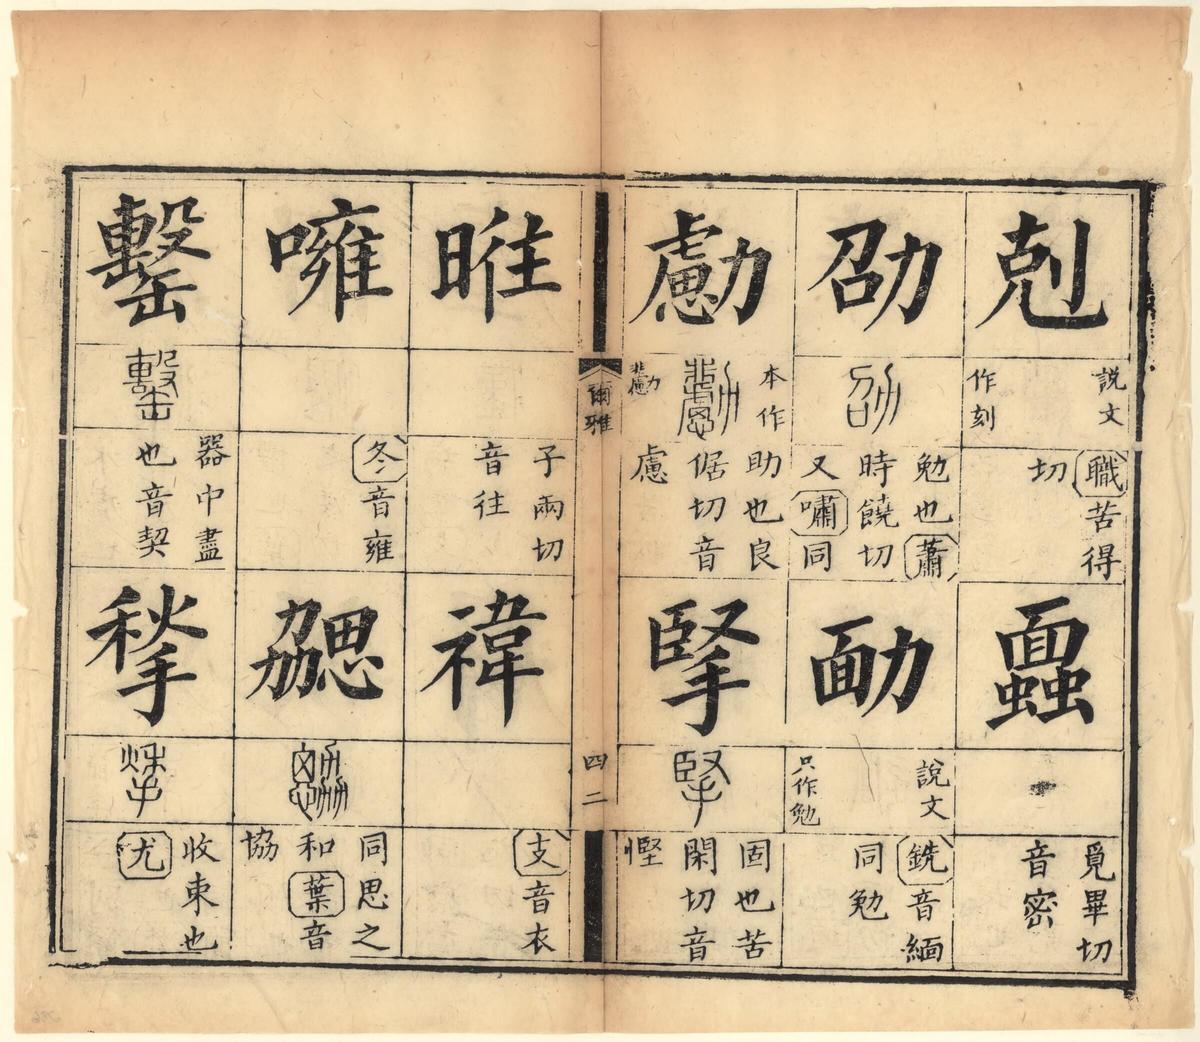 剋
說文
作刻
職苦得
切
覓畢切
音密
劭
勉也蕭
時饒切
又嘯同
勔
說文
只作勉
銑音緬
同勉
勴
本作
助也良
倨切音
慮
掔
固也苦
閑切音
慳
爾雅
四二
暀
子兩切
音往
禕
支音衣
噰
冬音雍
勰
同思之
和葉音
協
罊
器中盡
也音契
揫
收束也
尤